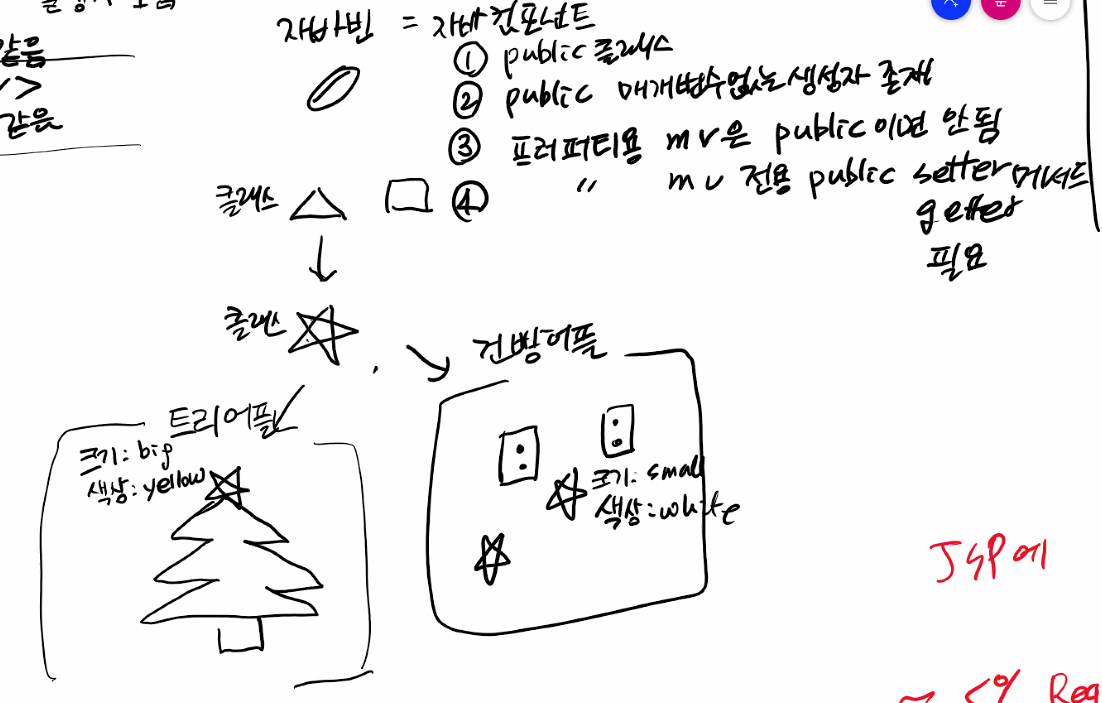 같음
/>
같음
자바빈 = 자바컴포넌트
① public 클래스
② public 매개변수없는생성자 존재
③ 프러퍼티용 mv은 public이면 안됨
④ 〃 mv 전용 public setter 메서드
getter
필요
클래스
클래스
트리어플
크기: big
색상: yellow
건빵어플
크기: small
색상: white
JSP에
<% Reg